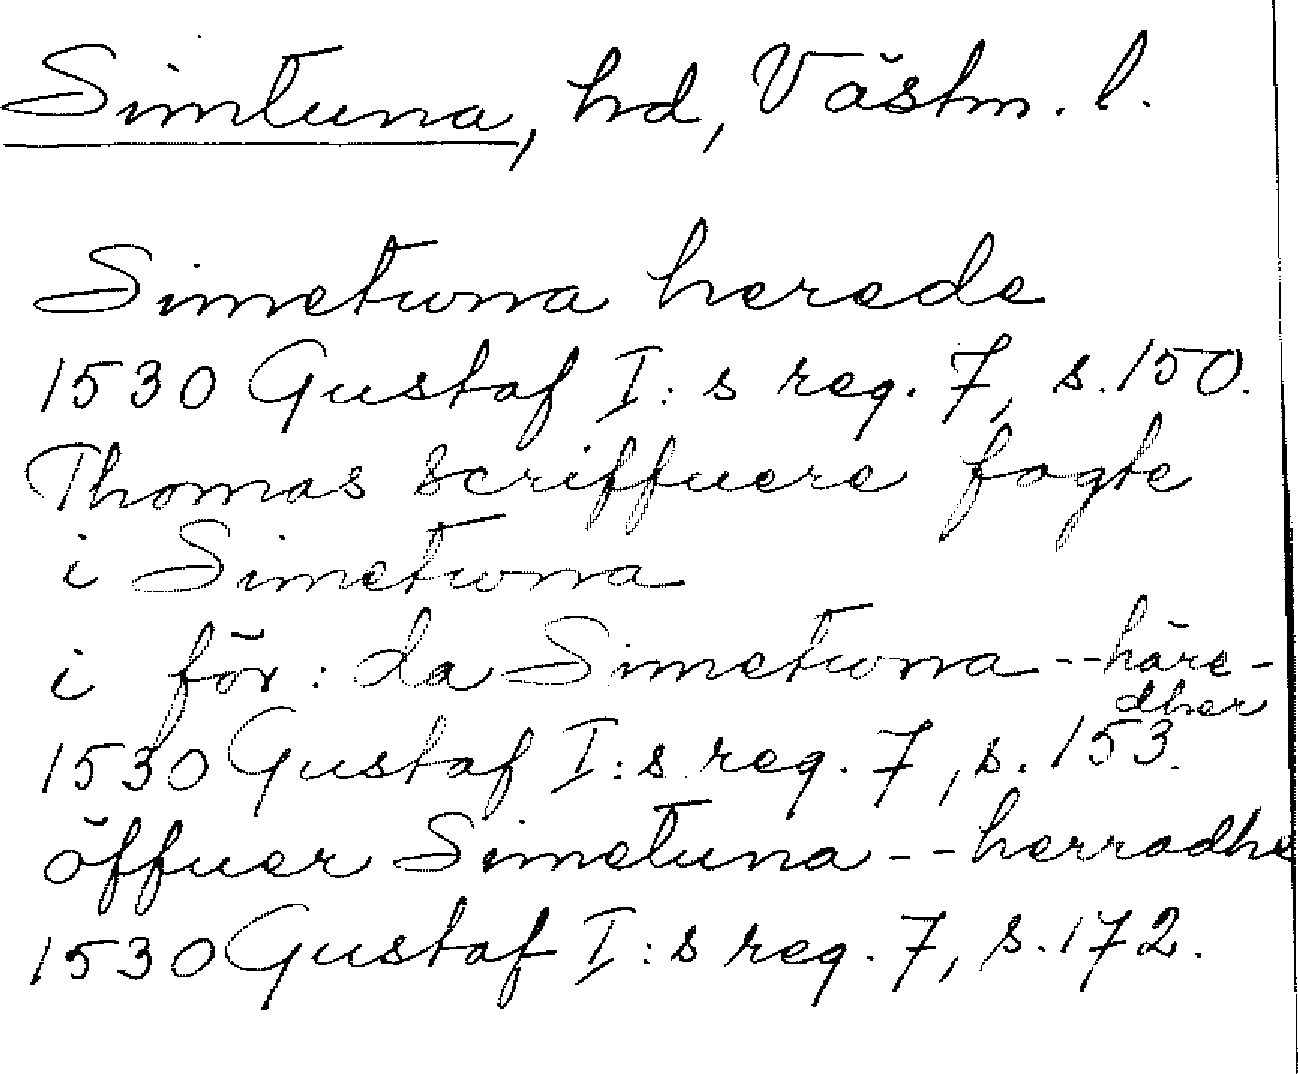 Simtuna, hd, Västm. l.
Simetwna herede
1530 Gustaf I:s reg. 7, s. 150.
Thomas scriffuere fogte
i Simetwna
i för: da Simetwna -- häre-
dher
1530 Gustaf I:s reg. 7, s. 153.
öffuer Simetuna -- herradhe
1530 Gustaf I:s reg. 7, s. 172.